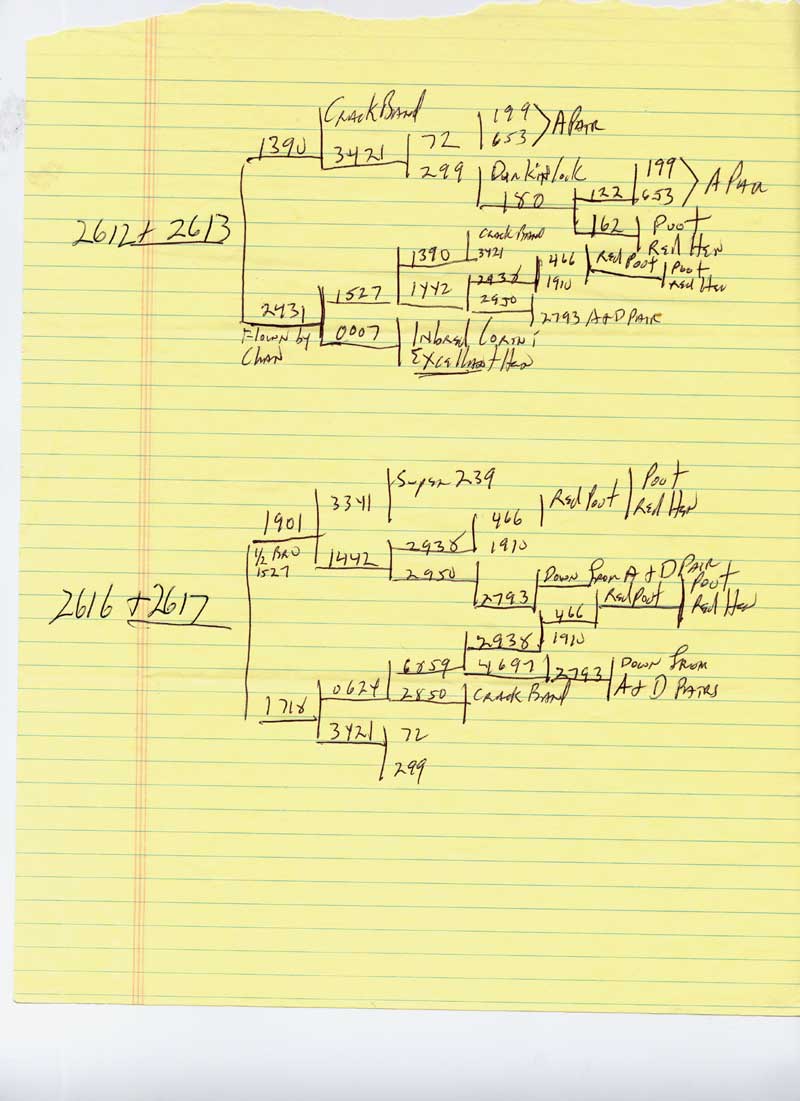 CRACK BAND
1390 3421 72 199 653 A PAIR
299 Dunkirk lock 199 653 A PAIR
180 122
162 Pout
Red Hen
2612 + 2613
1390 CRACK BAND
3421
1527 1442 2938 466 Red Pout Pout
2950 1910 Red Hen
2431 2793 A+D PAIR
Flown by 0007 Inbred
Chan Excellent Hen
Super 239
3341 466 Red Pout Pout
1901 2938 1910 Red Hen
1/2 BRO 1442
1527 2950 Down From A+D PAIR
2616 + 2617 2793 466 Red Pout Pout
2938 1910 Red Hen
6859 4697 2793 Down From
0624 2850 CRACK BAND A+D PAIRS
1718
3421 72
299